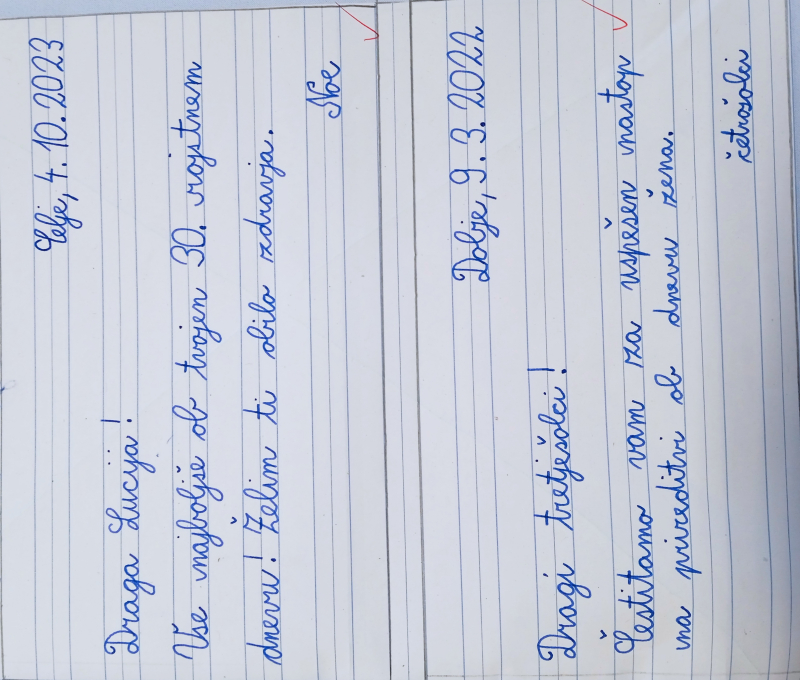 Celje, 4. 10. 2023
Draga Lucija!
Vse najboljše ob tvojen 30. rojstnem
dnevu! Želim ti obilo zdravja.
Noe
Dobje, 9. 3. 2022
Dragi tretješolci!
Čestitamo vam za uspešen nastop
na prireditvi ob dnevu žena.
četrošolci